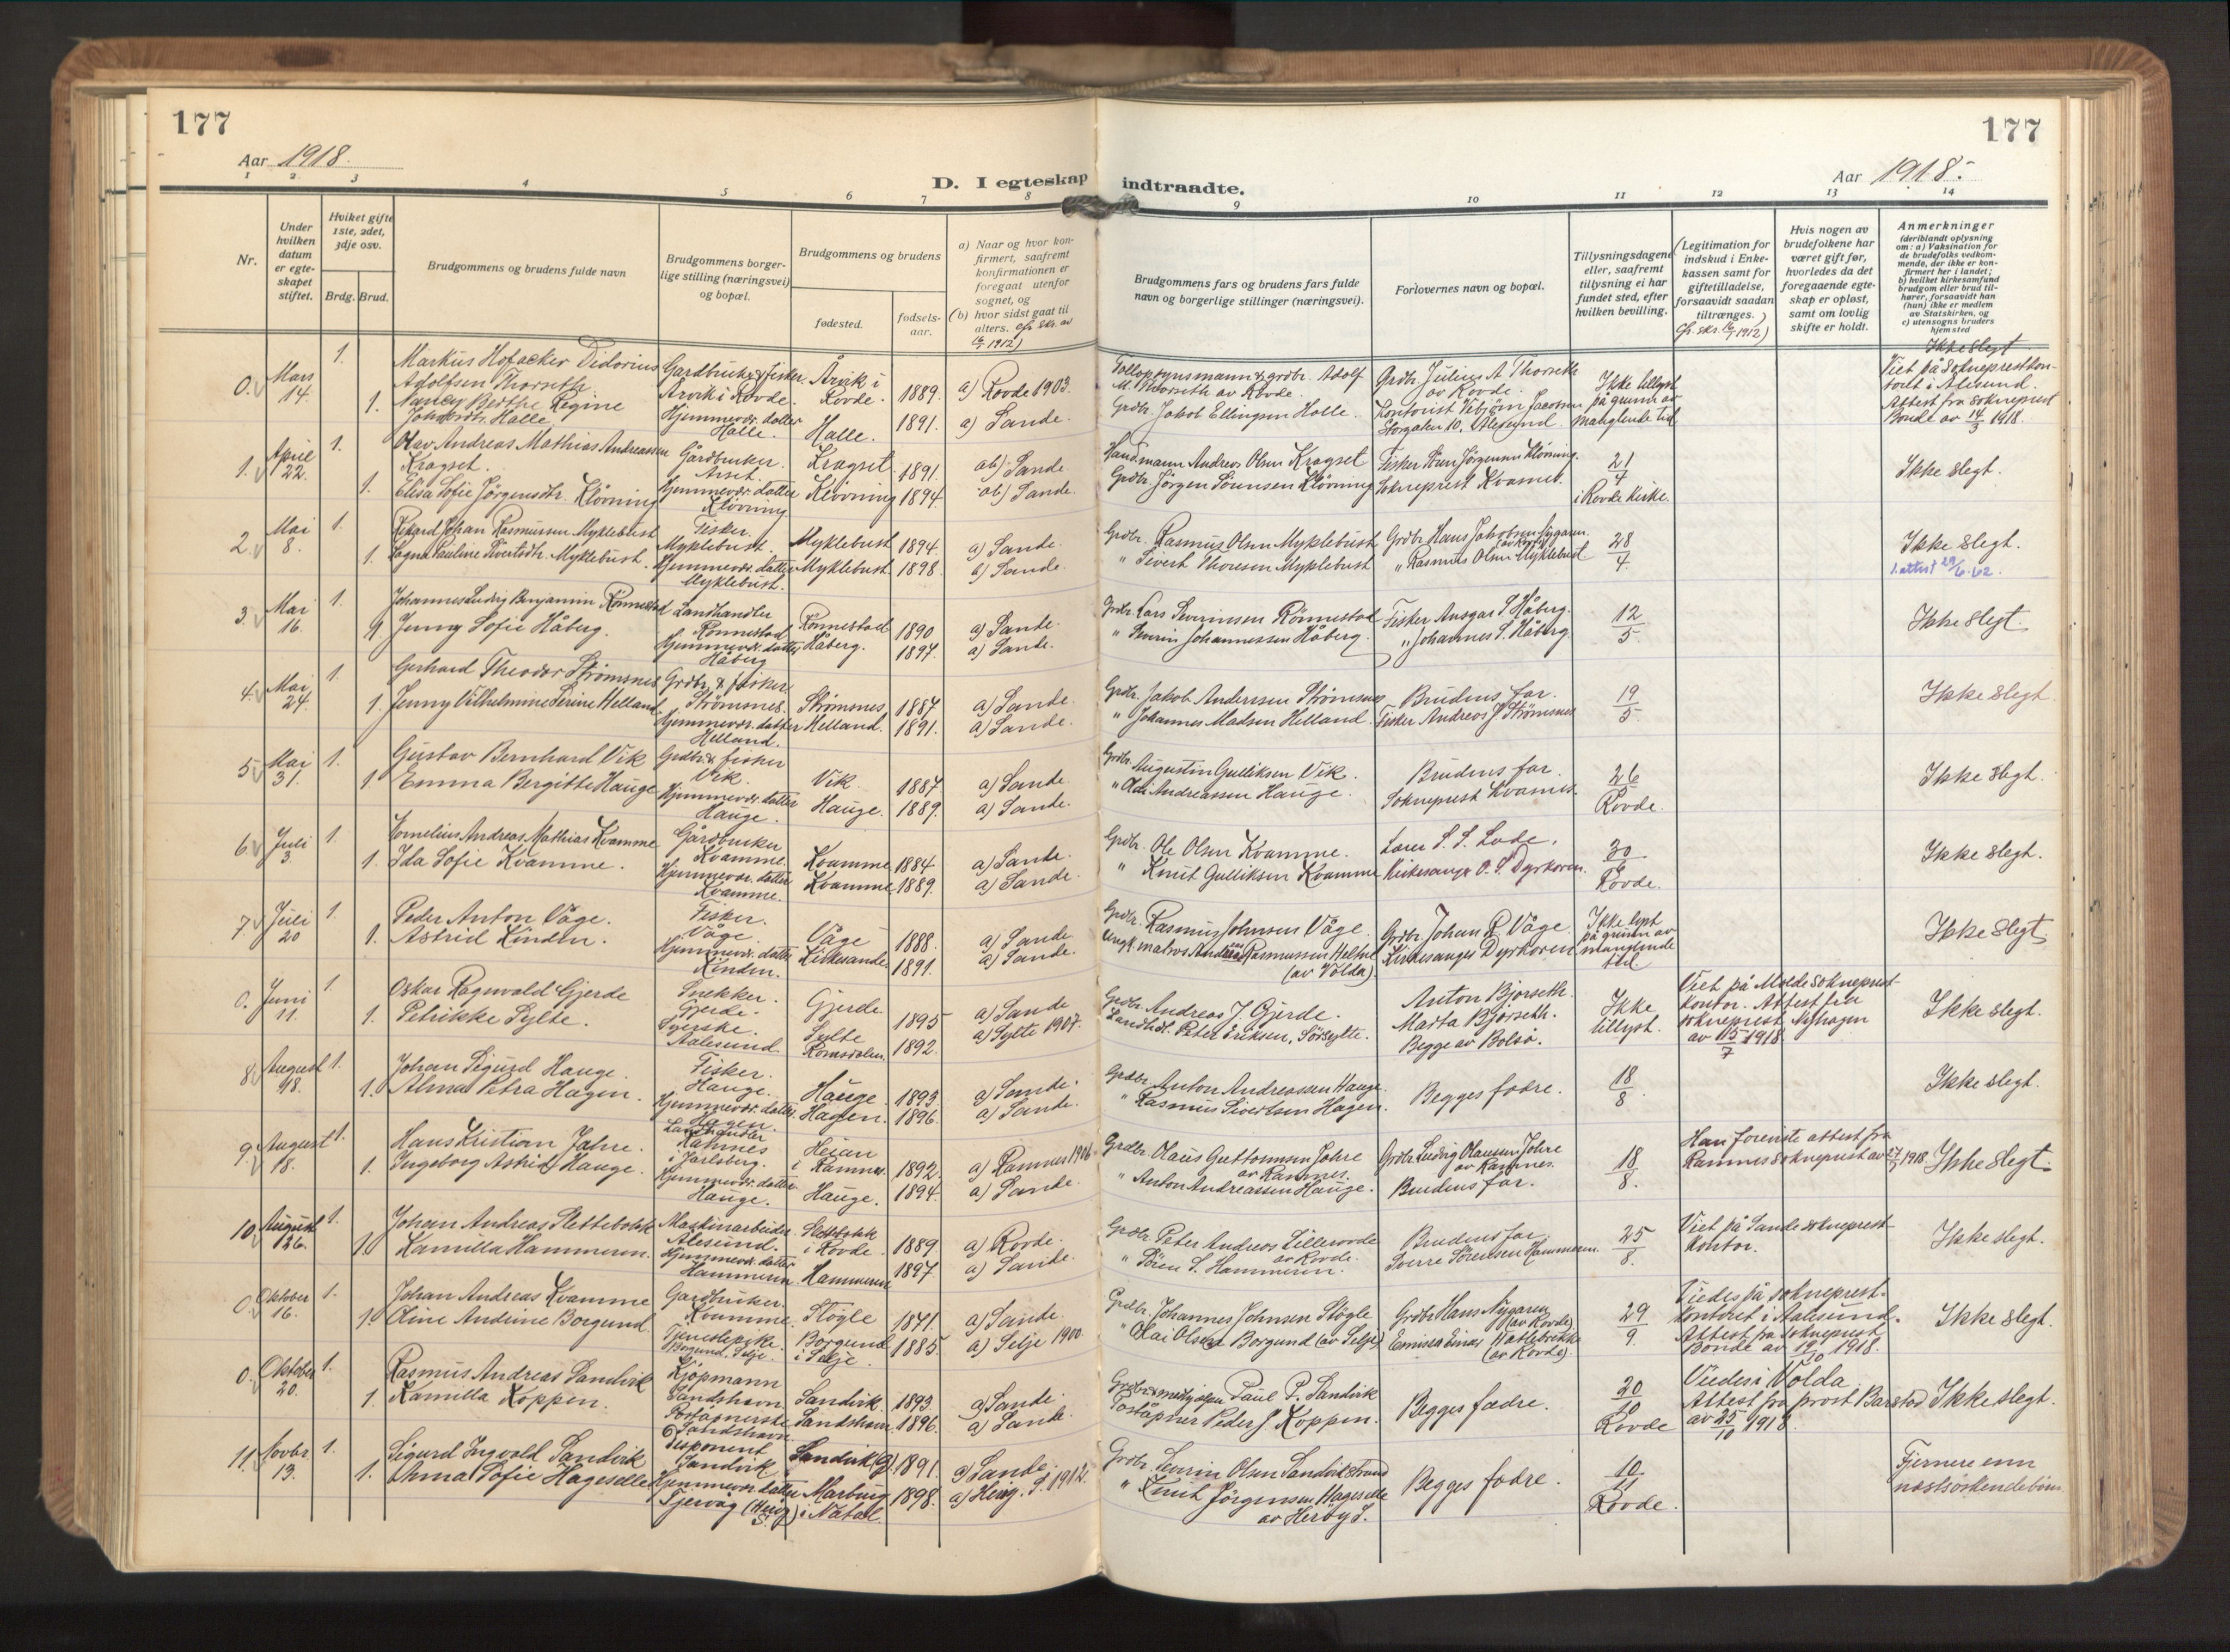 177
177
Aar 1918.
Aar 1918.
D. I egteskap indtraadte.
1 2 3 4 5 6 7 8 9 10 11 12 13 14
Nr.
Under hvilken datum er egteskapet stiftet.
Hviket gifte 1ste, 2det, 3dje osv.
Brdg. Brud.
Brudgommens og brudens fulde navn
Brudgommens borgerlige stilling (næringsvei) og bopæl.
Brudgommens og brudens
fødested.
fødselsaar.
a) Naar og hvor konfirmert, saafremt konfirmationen er foregaat utenfor sognet, og
(b) hvor sidst gaat til alters. cfr skr. av 16/1 1912)
Brudgommens fars og brudens fars fulde navn og borgerlige stillinger (næringsvei).
Forlovernes navn og bopæl.
Tillysningsdagene eller, saafremt tillysning ei har fundet sted, efter hvilken bevilling.
(Legitimation for indskud i Enkekassen samt for giftetilladelse, forsaavidt saadan tiltrænges.
cfr. skr. 16/1 1912)
Hvis nogen av brudefolkene har været gift før, hvorledes da det foregaaende egteskap er opløst, samt om lovlig skifte er holdt.
Anmerkninger
(deriblandt oplysning om: a) Vaksination for de brudefolks vedkommende, der ikke er konfirmert her i landet; b) hvilket kirkesamfund brudgom eller brud tilhører, forsaavidt han (hun) ikke er medlem av Statskirken, og c) utensogns bruders hjemsted
0. Mars 14. 1. Markus Hofacker Didorius Adolfsen Thorseth Gardbruk. & fisker Årvik i Rovde. Årvik i Rovde. 1889. a) Rovde 1903.
1. Nancy Berthe Regine Jakobsdtr. Halle Hjemmevær. datter Halle. Halle. 1891. a) Sande.
Tolloppsynsmann & grdbr. Adolf M. Thorseth av Rovde. Grdbr. Julius A Thorseth av Rovde. Ikke tillyst på grunn av manglende tid
Grdbr. Jakob Ellingsen Halle. Kontorist Jacobsen Storgaten 10, Ålesund
Ikke slegt
Viet på Sokneprestkontoret i Ålesund. Attest fra sokneprest Bonde av 14/3 1918.
1. April 22. 1. Olav Andreas Mathias Andreassen Kragset. Gårdbruker. Kragset 1891 ab) Sande
1. Elisa Sofie Jörgensdtr. Klövning Hjemmevær. datter Klövning Klövning 1894 ab) Sande.
Andreas Olsen Kragset Fisker Sören Jörgensen Klövning. 21/4 i Rovde Kirke. Ikke slegt.
Grdbr. Jörgen Sörensen Klövning Sokneprest Kvamen.
2. Mai 8. 1. Rikard Johan Rasmussen Myklebust Fisker. Myklebust. Myklebust 1894. a) Sande.
1. Pauline Sivertsdtr. Myklebust. Hjemmevær. datter Myklebust. Myklebust 1898. a) Sande.
Grdbr. Rasmus Olsen Myklebust Grdbr. Hans Jakobsen Nygaren 28/4 Ikke slegt.
" Sivert Thoresen Myklebust " Rasmus Olsen Myklebust
1. attest 29/6. 62.
3. Mai 16. 1. Johannes Ludvig Benjamin Rönnestad Landhandler Rönnestad Rönnestad 1890 a) Sande.
1 Jenny Sofie Håberg. Hjemmevær. datter Håberg Håberg. 1897. a) Sande.
Grdbr. Lars Severinsen Rönnestad Fisker Ansgar S. Håberg. 12/5 Ikke slegt.
" Severin Johannessen Håberg. " Johannes S. Håberg.
4. Mai 24. 1. Gerhard Theodor Strömsnes Grdbr. & fisker Strömsnes. Strömsnes 1887 a) Sande
1. Jenny Vilhelmine Serine Helland Hjemmevær. datter Helland. Helland. 1891. a) Sande.
Grdbr. Jakob Anderssen Strömsnes Brudens far. 19/5. Ikke slegt
" Johannes Madsen Helland. Fisker Andreas J Strömsnes
5. Mai 31. 1. Gustav Bernhard Vik Grdbr. & fisker Vik. Vik 1887. a) Sande
1. Emma Bergitte Hauge Hjemmevær. datter Hauge. Hauge. 1889. a) Sande.
Grdbr. Augustin Gulliksen Vik. Brudens far. 26/5 Rovde. Ikke slegt.
" Andreassen Hauge. Sokneprest Kvamen.
6. Juli 3. 1. Kornelius Andreas Mathias Kvamme Gårdbruker Kvamme. Kvamme 1884 a) Sande.
1. Ida Sofie Kvamme. Hjemmevær. datter Kvamme. Kvamme 1889. a) Sande.
Grdbr. Ole Olsen Kvamme. Lærer S. S. Lade. 30/6 Rovde. Ikke slegt.
" Knut Gulliksen Kvamme Kirkesanger O. S. Dyrkoren.
7. Juli 20 1. Peder Anton Våge. Fisker. Våge Våge 1888. a) Sande
1. Astrid Kinden. Hjemmevær. datter Kinden. 1891. a) Sande.
Grdbr. Rasmus Johnsen Våge. Grdbr. Johan R. Våge. Ikke lyst på grunn av manglende tid Ikke slegt.
Rasmussen (av Volda) Kirkesanger Dyrkoren
0. Juni 11. 1. Oskar Ragnvald Gjerde Snekker. Gjerde. Gjerde 1895 a) Sande
1. Petrikke Sylte. Syerske. Aalesund. Sylte Romsdalen. 1892. a) Sylte 1907.
Grdbr. Andreas J. Gjerde. Anton Bjorseth. Marta Bjorseth. Begge av Bolsö. Ikke tillyst.
Landhdl. Peter Eriksen, Sörsylte.
Viet på Molde sokneprestkontor. Attest fra sokneprest Nyhagen av 15/7 1918. Ikke slegt.
8. August 18. 1. Johan Sigurd Hauge. Fisker. Hauge. Hauge 1893 a) Sande.
1. Alma Petra Hagen. Hjemmevær. datter. Hagen. Hagen. 1896. a) Sande.
Grdbr. Anton Andreassen Hauge. Begges fedre. 18/8. Ikke slegt.
" Rasmus Sivertsen Hagen.
9. August 18. 1. Hans Kristian Jahre. Landhandler Ramnes i Jarlsberg. Heian i Ramnes 1892 a) Ramnes 1906.
1. Ingeborg Astrid Hauge. Hjemmevær. datter Hauge. Hauge. 1894. a) Sande.
Grdbr. Olaus Guttormsen Jahre av Ramnes. Grdbr. Ludvig Olaussen Jahre av Ramnes. 18/8.
" Anton Andreassen Hauge. Brudens far.
Han foreviste attest fra Ramnes sokneprest av 1918. Ikke slegt.
10. August 26. 1. Johan Andreas Slettebakk Maskinarbeider Ålesund. Slettebakk i Rovde 1889. a) Rovde.
1. Kamilla Hammeren. Hjemmevær. datter Hammeren Hammeren 1897 a) Sande.
Grdbr. Peter Andreas Lillerovde av Rovde. Brudens far 25/8. Viet på Sande sokneprestkontor. Ikke slegt.
" Sören S. Hammeren. Sverre Sörensen Hammeren.
0. Oktober 16. 1. Johan Andreas Kvamme Gardbruker. Kvamme. Stögle 1871. a) Sande.
1. Oline Andrine Borgund. Borgund, Selje. Borgund i Selje. 1885. a) Selje 1900
Grdbr. Johannes Johnsen Stögle Grdbr. Hans Nygaren (av Rovde) 29/9.
Olsen Borgund (av Selje) Einar Hatlebrekke (av Rovde).
Viedes på sokneprestkontoret i Aalesund. Attest fra sokneprest Bonde av 19/10 1918. Ikke slegt.
0. Oktober 20. 1. Rasmus Andreas Sandvik Kjöpmann Sandshavn Sandvik. 1893 a) Sande
1. Kamilla Koppen. Poståpnerske Sandshavn. Sandshavn 1896. a) Sande.
Paul P. Sandvik Begges fædre. 20/10 Rovde
Poståpner Peder J Koppen.
Viedes i Volda Attest fra prost Barstad av 25/10 1918. Ikke slegt.
11. Novbr. 13. 1. Sigurd Ingvald Sandvik Disponent Sandvik Sandvik 1891. a) Sande.
1. Anna Sofie Hageselle Hjemmevær. datter Tjervåg Marburg i Natal. 1898. a) 1912.
Grdbr. Severin Olsen Sandvikstrand Begges fædre. 10/11 Rovde. Fjernere enn næstsöskendebörn
" Knut Jörgensen Hageselle av Heröy S.